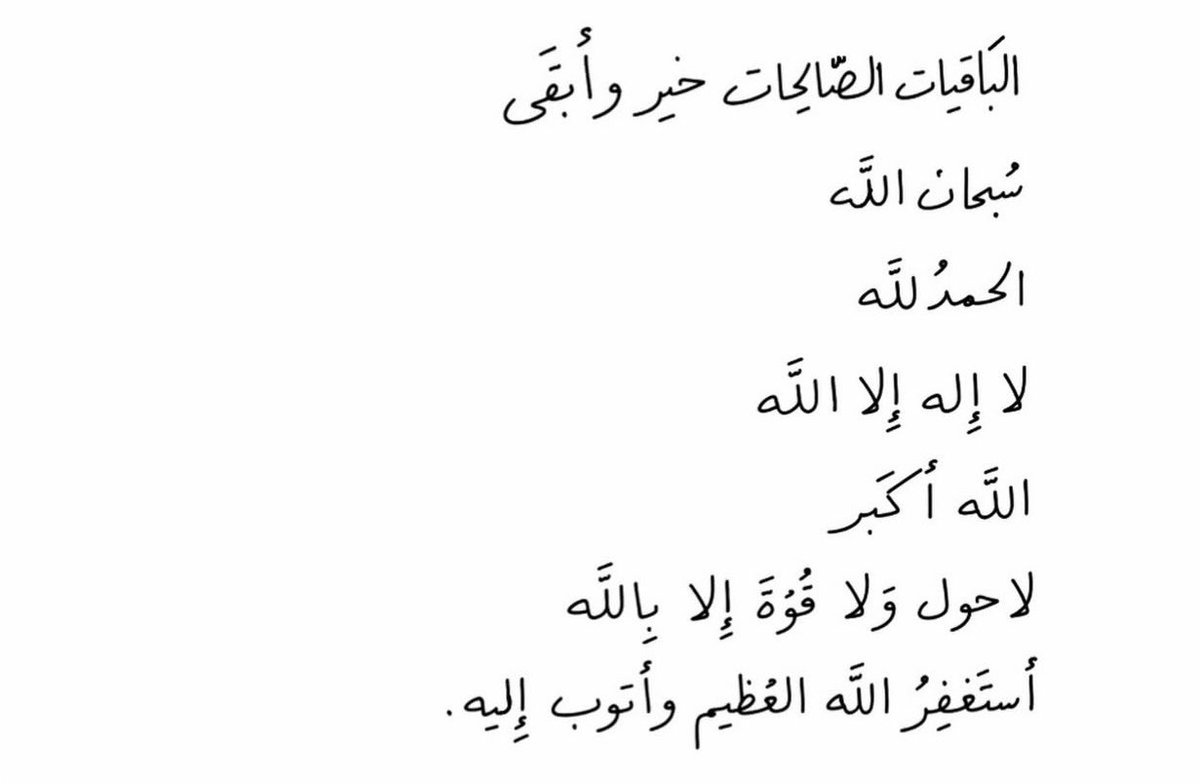 البَاقيِات الصّالِحات خيِر وأُبقَى
سُبحان اللَّه
الحمدُ للَّه
لا إِله إِلا اللَّه
اللَّه أكَبر
لا حول وَلا قُوُةَ إِلا بِاللَّه
أستَغفِرُ اللَّه العُظيم وأتوب إِليه.